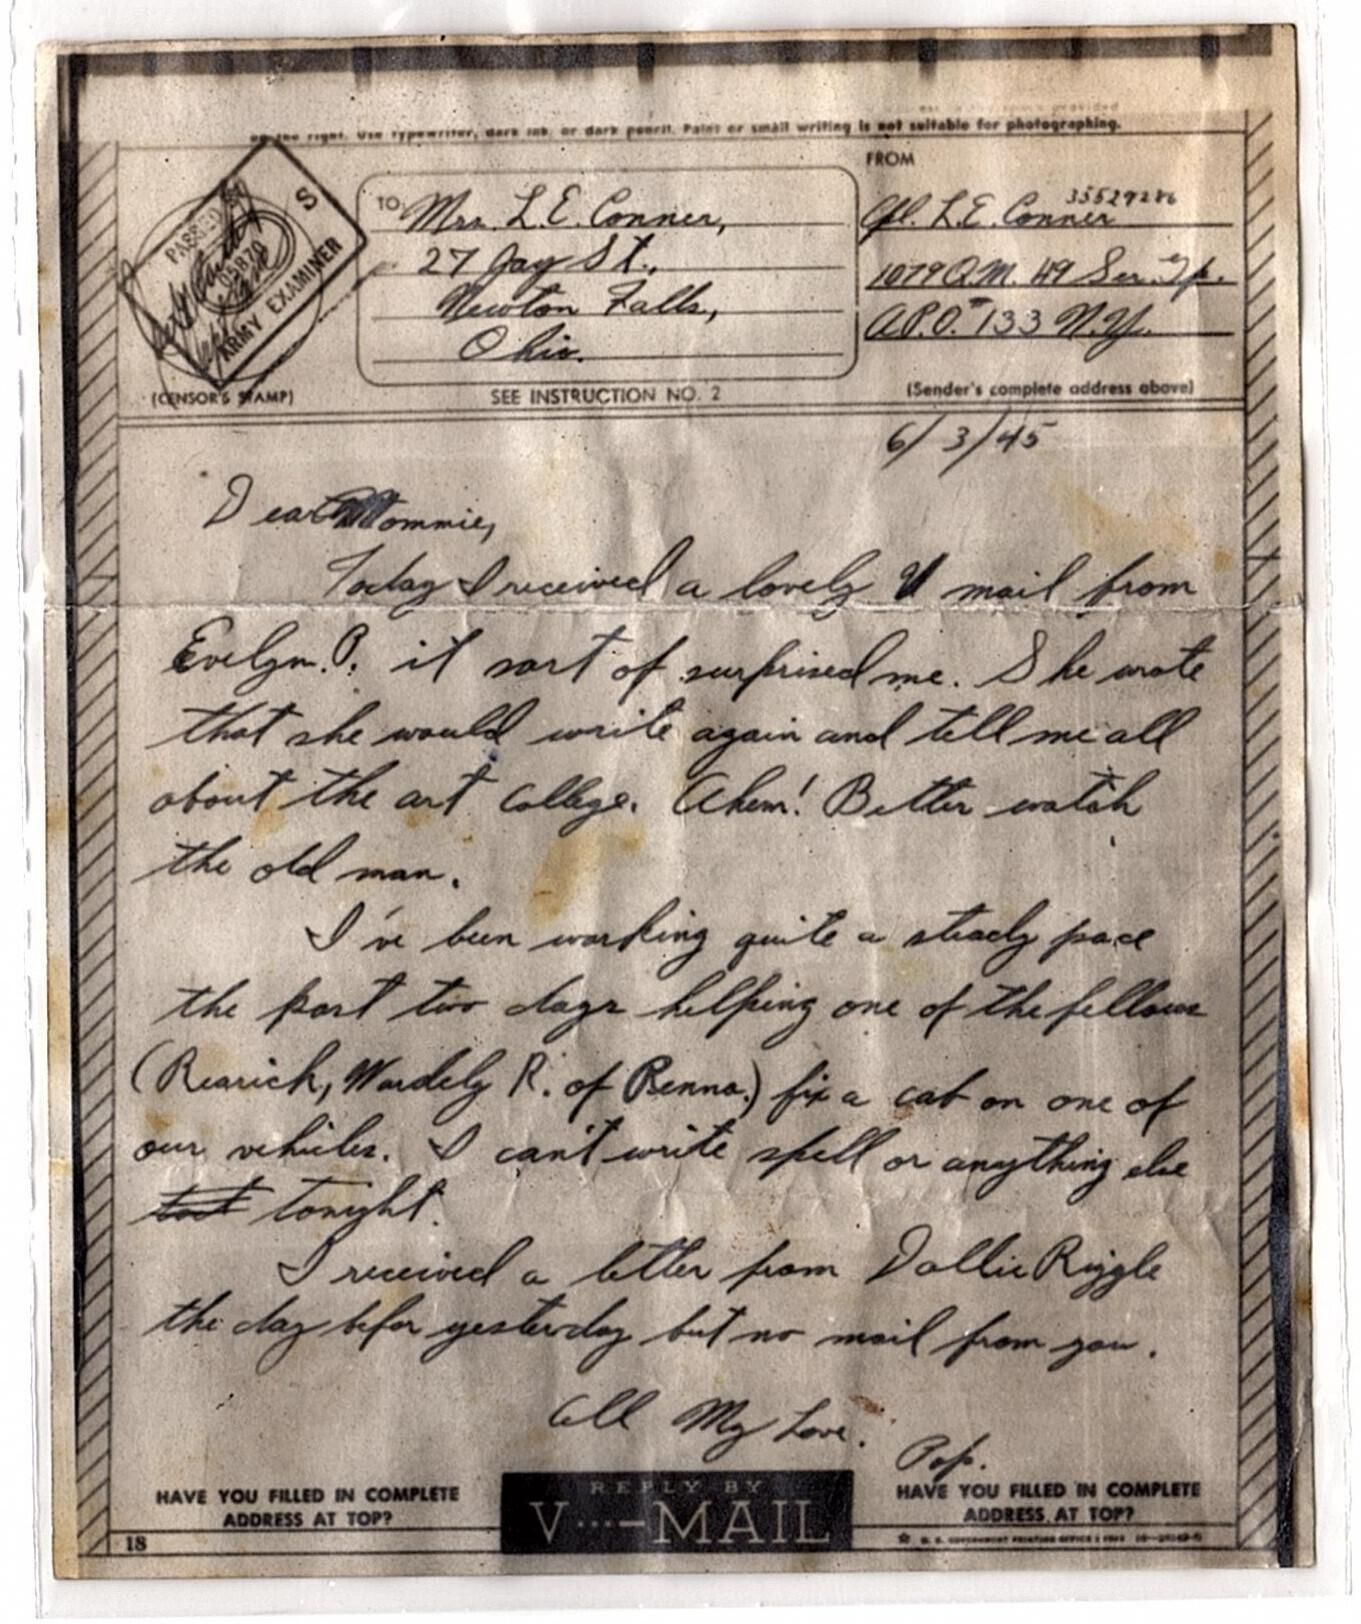 on the right. Use typewriter, dark ink, or dark pencil. Faint or small writing is not suitable for photographing.
PASSED BY
S
05870
ARMY EXAMINER
(CENSOR'S STAMP)
TO
Mrs. L.E. Conner,
27 Jay St.,
Newton Falls,
Ohio.
SEE INSTRUCTION NO. 2
FROM
Cpl. L.E. Conner 35529286
1079 Q.M. H9 Ser. Gp.
A.P.O. # 133 N.Y.
(Sender's complete address above)
6/3/45
Dear Mommie,
Today I received a lovely V mail from
Evelyn. P. it sort of surprised me. She wrote
that she would write again and tell me all
about the art college. Ahem! Better watch
the old man.
I've been working quite a steady pace
the past two days helping one of the fellows
(Rearick, Wardely R. of Penna.) fix a cab on one of
our vehicles. I can't write spell or anything else
tonight.
I received a letter from Dollie Riggle
the day befor yesterday but no mail from you.
All My Love.
Pop.
HAVE YOU FILLED IN COMPLETE
ADDRESS AT TOP?
REPLY BY
V···—MAIL
HAVE YOU FILLED IN COMPLETE
ADDRESS AT TOP?
18
☆ U. S. GOVERNMENT PRINTING OFFICE